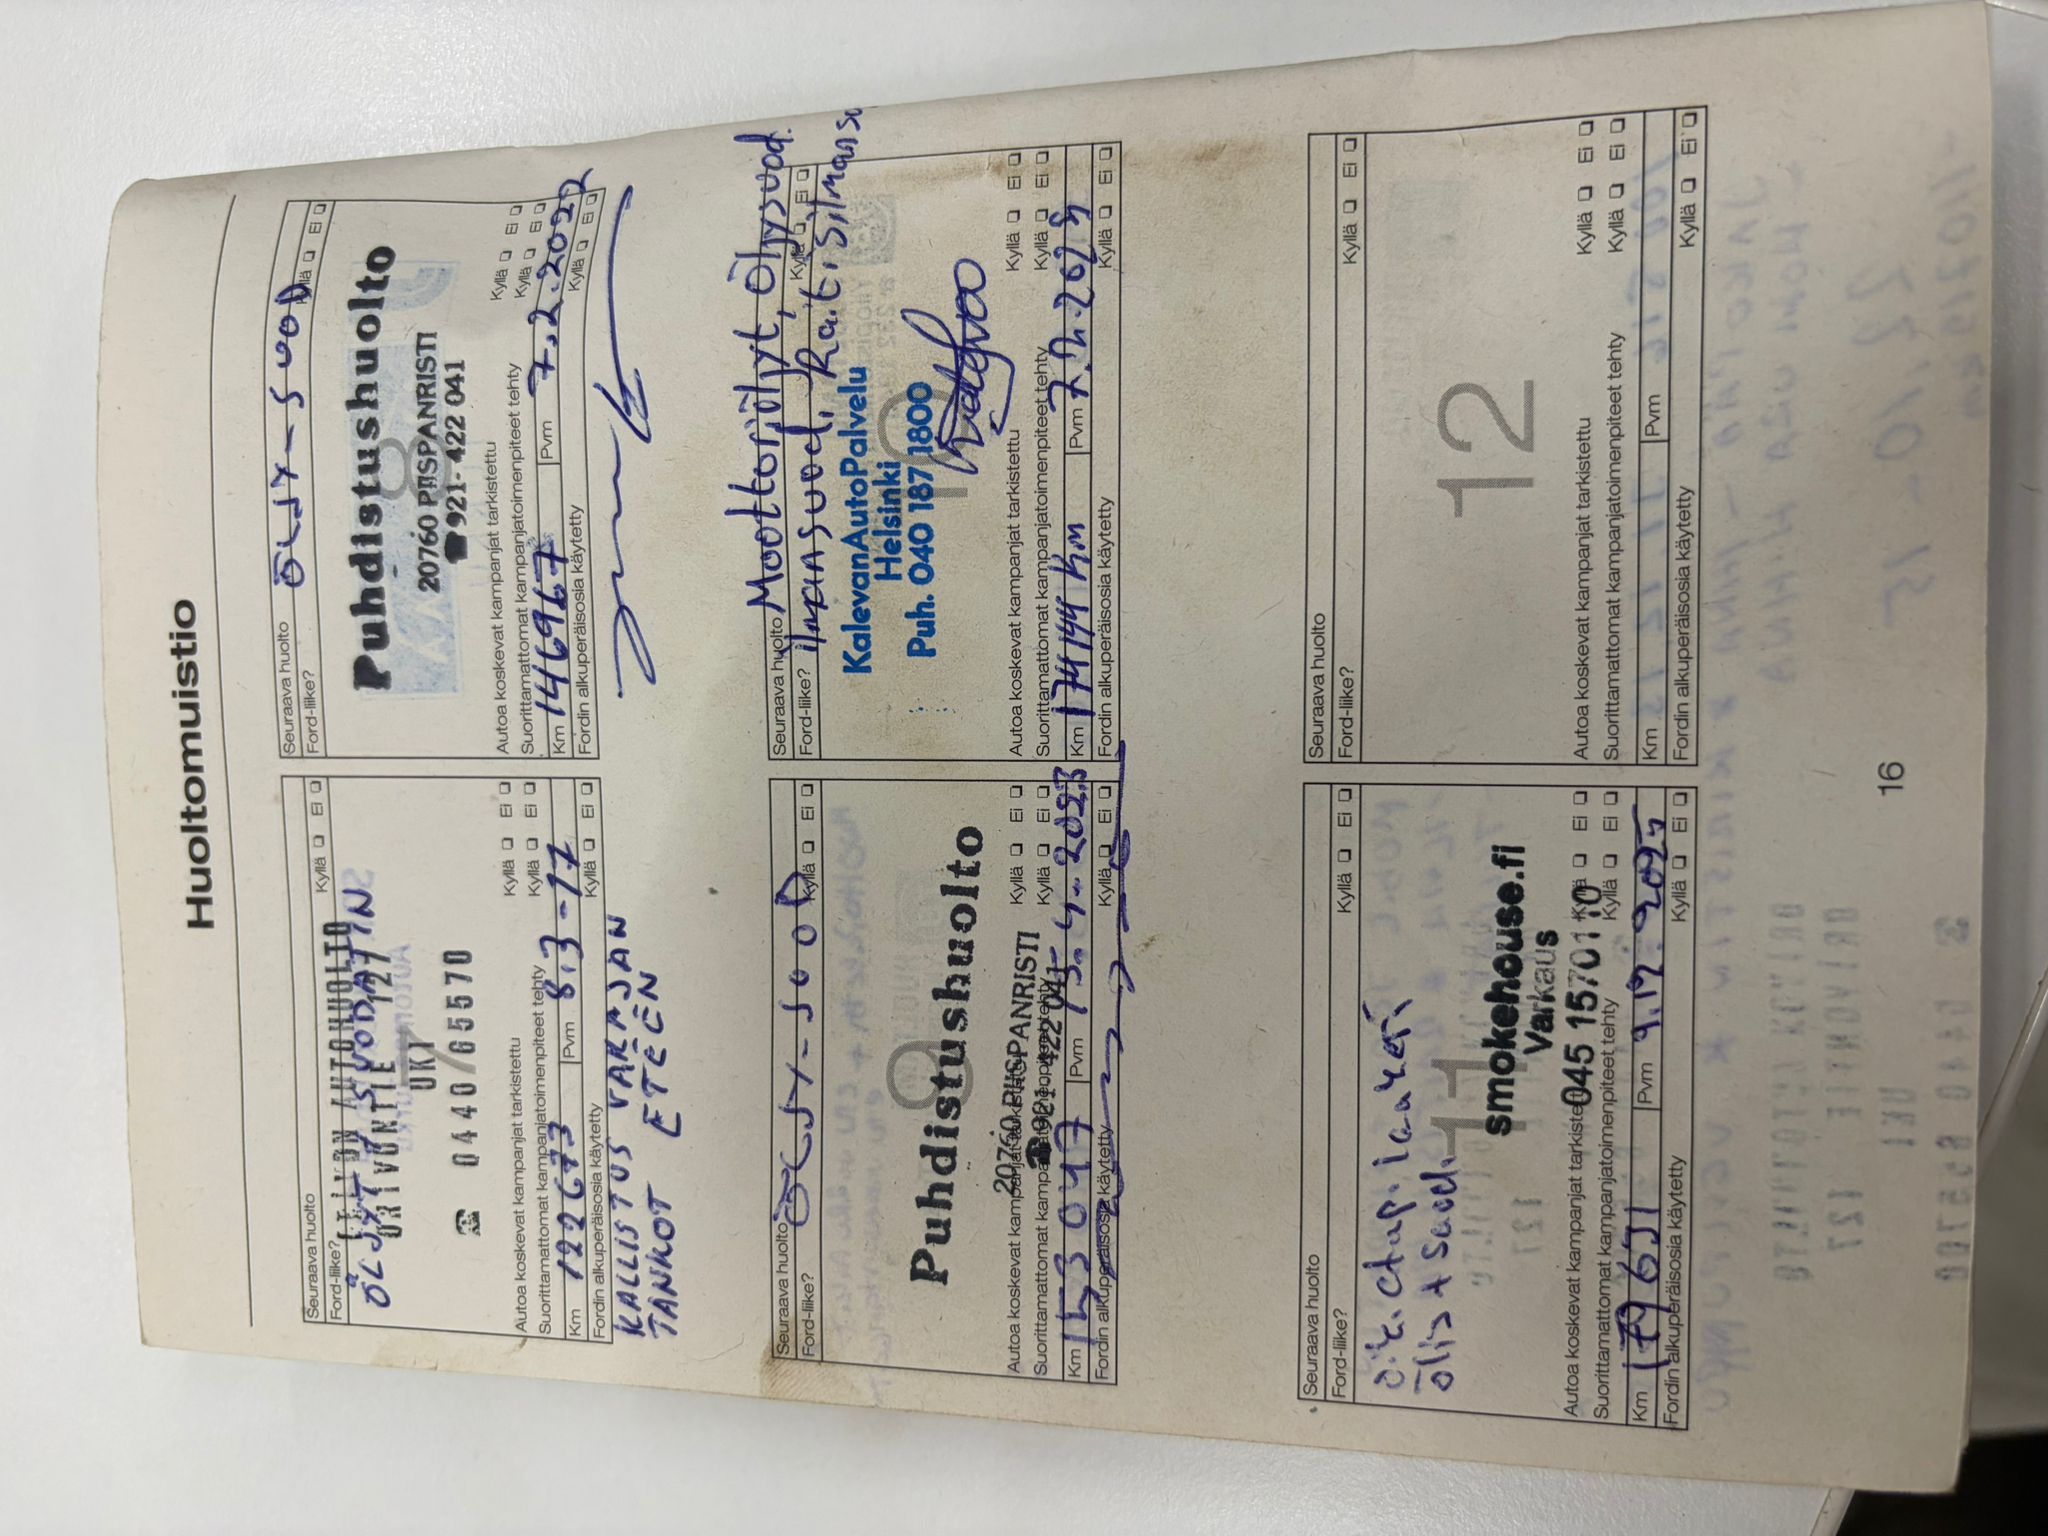 Huoltomuistio
Seuraava huolto
Ford-liike? Kyllä Ei
AUTOHUOLTO
ÖLJYT + SUODATIN
ORIVONTIE 127
UKI
☎ 0440/65570
Autoa koskevat kampanjat tarkistettu Kyllä Ei
Suorittamattomat kampanjatoimenpiteet tehty Kyllä Ei
Km 122673 Pvm 8.3-17
Fordin alkuperäisosia käytetty Kyllä Ei
KALLISTUS VAKAJAN
TANKOT ETEEN
Seuraava huolto ÖLJY-SUOD
Ford-liike? Kyllä Ei
8
Puhdistushuolto
20760 PIISPANRISTI
☎ 921-422 041
Autoa koskevat kampanjat tarkistettu Kyllä Ei
Suorittamattomat kampanjatoimenpiteet tehty Kyllä Ei
Km 146967 Pvm 7.2.2022
Fordin alkuperäisosia käytetty Kyllä Ei
Seuraava huolto ÖLJY-SUOD
Ford-liike? Kyllä Ei
9
Puhdistushuolto
20760 PIISPANRISTI
☎ 921-422 041
Autoa koskevat kampanjat tarkistettu Kyllä Ei
Suorittamattomat kampanjatoimenpiteet tehty Kyllä Ei
Km 153047 Pvm 15.4.2023
Fordin alkuperäisosia käytetty Kyllä Ei
Seuraava huolto Moottoriöljyt, öljysuod.
Ford-liike? Kyllä Ei
ilmansuod, Rait.silmansu
10
KalevanAutoPalvelu
Helsinki
Puh. 040 187 1800
Autoa koskevat kampanjat tarkistettu Kyllä Ei
Suorittamattomat kampanjatoimenpiteet tehty Kyllä Ei
Km 174144 Km Pvm
Fordin alkuperäisosia käytetty Kyllä Ei
Seuraava huolto
Ford-liike? Kyllä Ei
11
smokehouse.fi
Varkaus
045 1570110
Autoa koskevat kampanjat tarkistettu Kyllä Ei
Suorittamattomat kampanjatoimenpiteet tehty Kyllä Ei
Km 179651 Pvm 9.12.2025
Fordin alkuperäisosia käytetty Kyllä Ei
Seuraava huolto
Ford-liike? Kyllä Ei
12
Autoa koskevat kampanjat tarkistettu Kyllä Ei
Suorittamattomat kampanjatoimenpiteet tehty Kyllä Ei
Km Pvm
Fordin alkuperäisosia käytetty Kyllä Ei
16